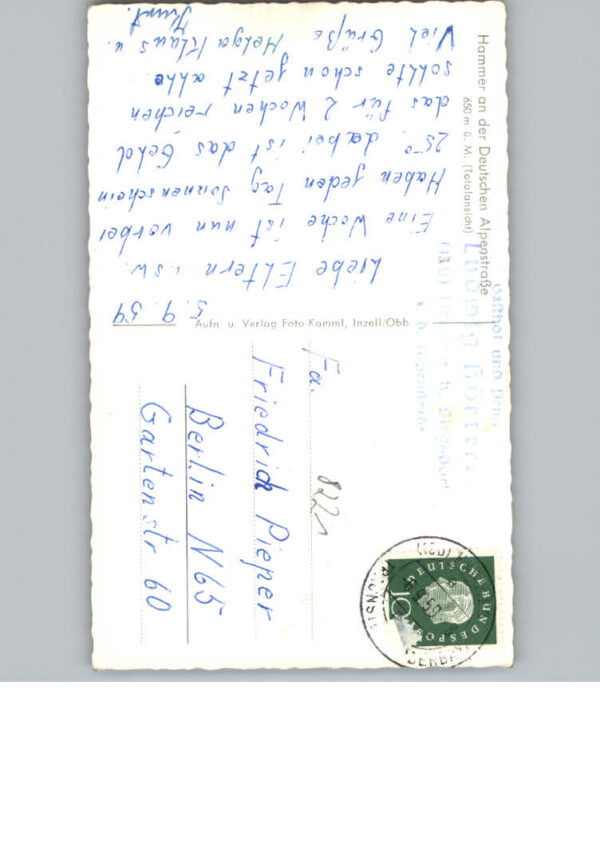 Hammer an der Deutschen Alpenstraße
650 m ü. M. (Totalansicht)
5. 9. 59
Liebe Eltern usw.
Eine Woche ist nun vorbei
Haben jeden Tag Sonnenschein
25° dabei ist das Gehol
das für 2 Wochen reichen
sollte schon jetzt
Viel Grüße Helga Klaus u.
Aufn. u. Verlag Foto Kamml, Inzell/Obb
Gasthof und
Ludwig
Fa.
Friedrich Pieper
Berlin N65
Gartenstr 60
8221
DEUTSCHE BUNDESPOST
10